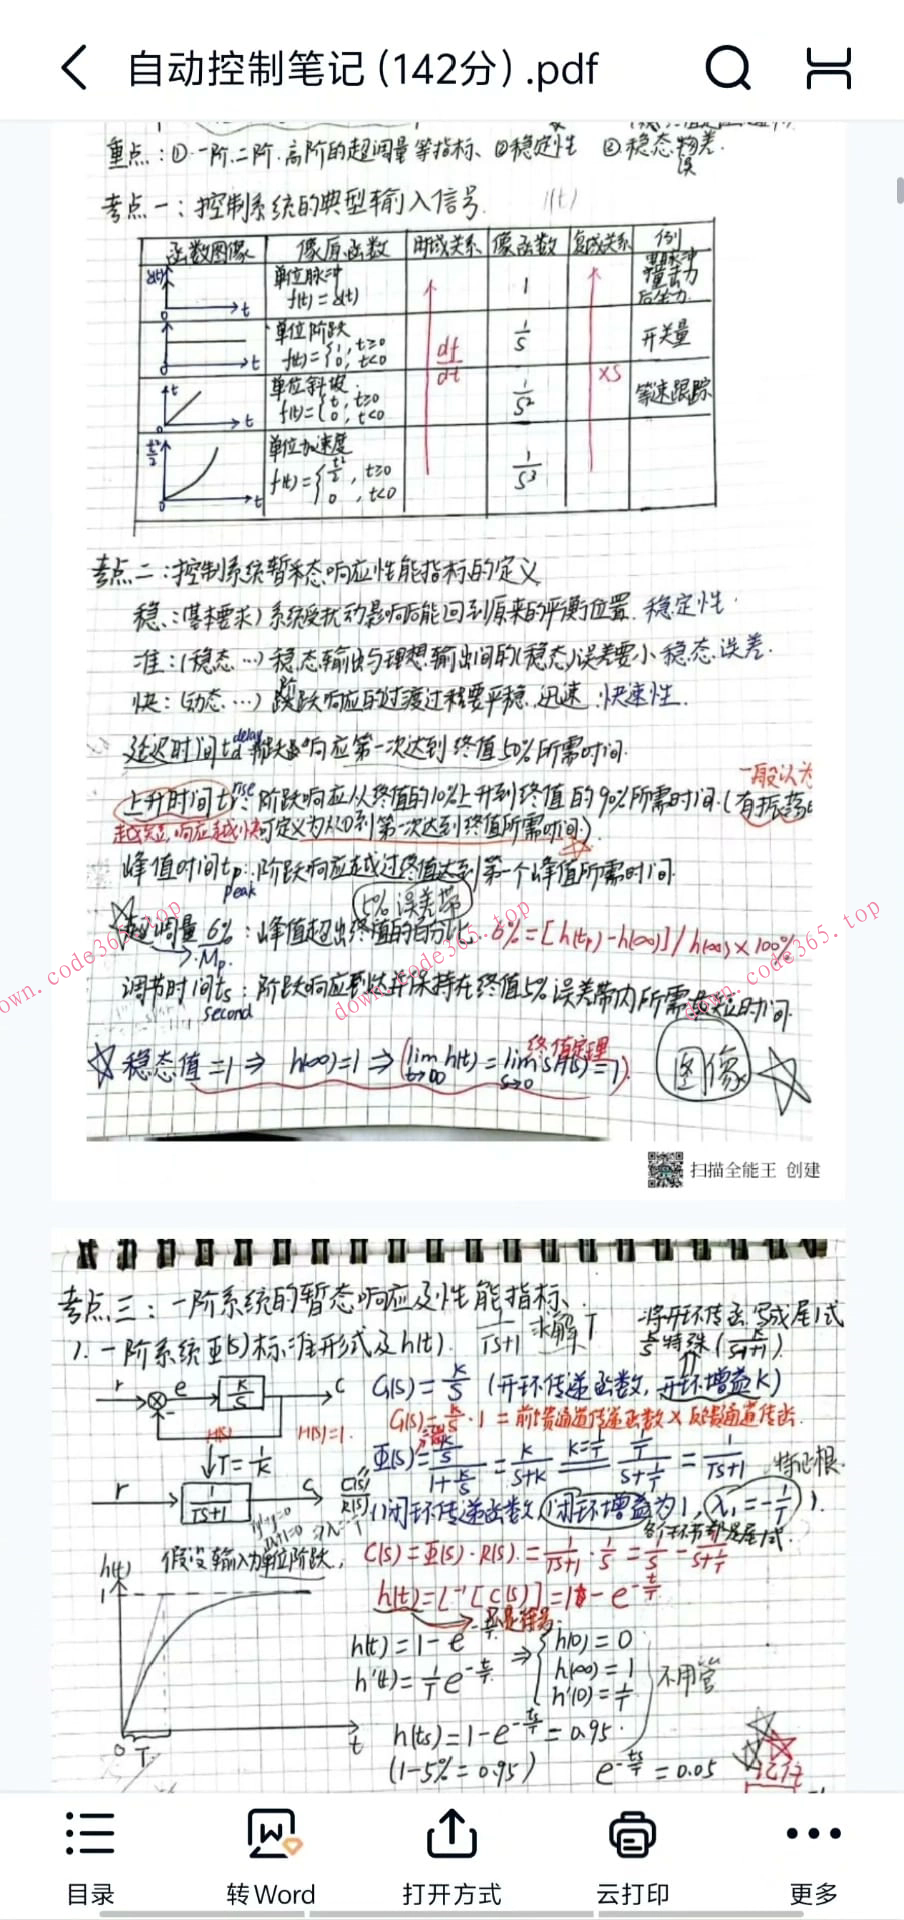 自动控制笔记(142分).pdf
重点:①一阶.二阶.高阶的超调量等指标、②稳定性 ③稳态误差.
考点一:控制系统的典型输入信号. 1(t)
函数图像 像原函数 时域关系 像函数 复域关系 例
δ(t) t 0 单位脉冲 f(t)=δ(t) 1 电脉冲 撞击力 后坐力
t 0 单位阶跃 f(t)={1, t≥0 0, t<0 df/dt 1/S ×S 开关量
t t 0 单位斜坡 f(t)={t, t≥0 0, t<0 1/S² 等速跟踪
t²/2 t 0 单位加速度 f(t)={t²/2, t≥0 0, t<0 1/S³
考点二:控制系统暂态响应性能指标的定义
稳:(基本要求)系统受扰动影响后能回到原来的平衡位置. 稳定性.
准:(稳态…)稳态输出与理想输出间的(稳态)误差要小. 稳态误差.
快:(动态…)阶跃响应的过渡过程要平稳、迅速. 快速性.
延迟时间td delay:阶跃响应第一次达到终值50%所需时间.
一般认为
上升时间tr rise:阶跃响应从终值的10%上升到终值的90%所需时间.(有振荡时
越短,响应越快 可定义为从0到第一次达到终值所需时间).
峰值时间tp:阶跃响应越过终值达到第一个峰值所需时间.
peak
5%误差带
超调量σ%:峰值超出终值的百分比. σ%=[h(tp)-h(∞)]/h(∞)×100%
Mp.
调节时间ts:阶跃响应到达并保持在终值5%误差带内所需最短时间.
second
终值定理
稳态值=1⇒ h(∞)=1⇒(lim t→∞ h(t)=lim s→0 sH(s)=1). 图像
down.code365.top
down.code365.top
down.code365.top
扫描全能王 创建
考点三:一阶系统的暂态响应及性能指标.
1/(TS+1) 求解T 将开环传函写成尾1式
1.一阶系统Φ(S)标准形式及h(t). K/S 特殊(K/(S+1))
r e K/S C G(S)=K/S (开环传递函数,开环增益K)
H(S) H(S)=1. G(S)=K/S·1=前馈通道传递函数×反馈通道传函.
T=1/K Φ(S)=(K/S)/(1+K/S)=K/(S+K) K=1/T (1/T)/(S+1/T)=1/(TS+1) 特征根.
r 1/(TS+1) C C(S)/R(S) (闭环传递函数,闭环增益为1,λ₁=-1/T).
假设输入为单位阶跃, C(S)=Φ(S)·R(S)=1/(TS+1)·1/S=1/S-1/(S+1/T)
h(t) 1 h(t)=L⁻¹[C(S)]=1-e^(-t/T)
h(t)=1-e^(-t/T) ⇒ {h(0)=0
h'(t)=1/T e^(-t/T) h(∞)=1 不用管
h'(0)=1/T
0 T t h(ts)=1-e^(-ts/T)=0.95.
(1-5%=0.95) e^(-ts/T)=0.05 记住
目录 转Word 打开方式 云打印 更多